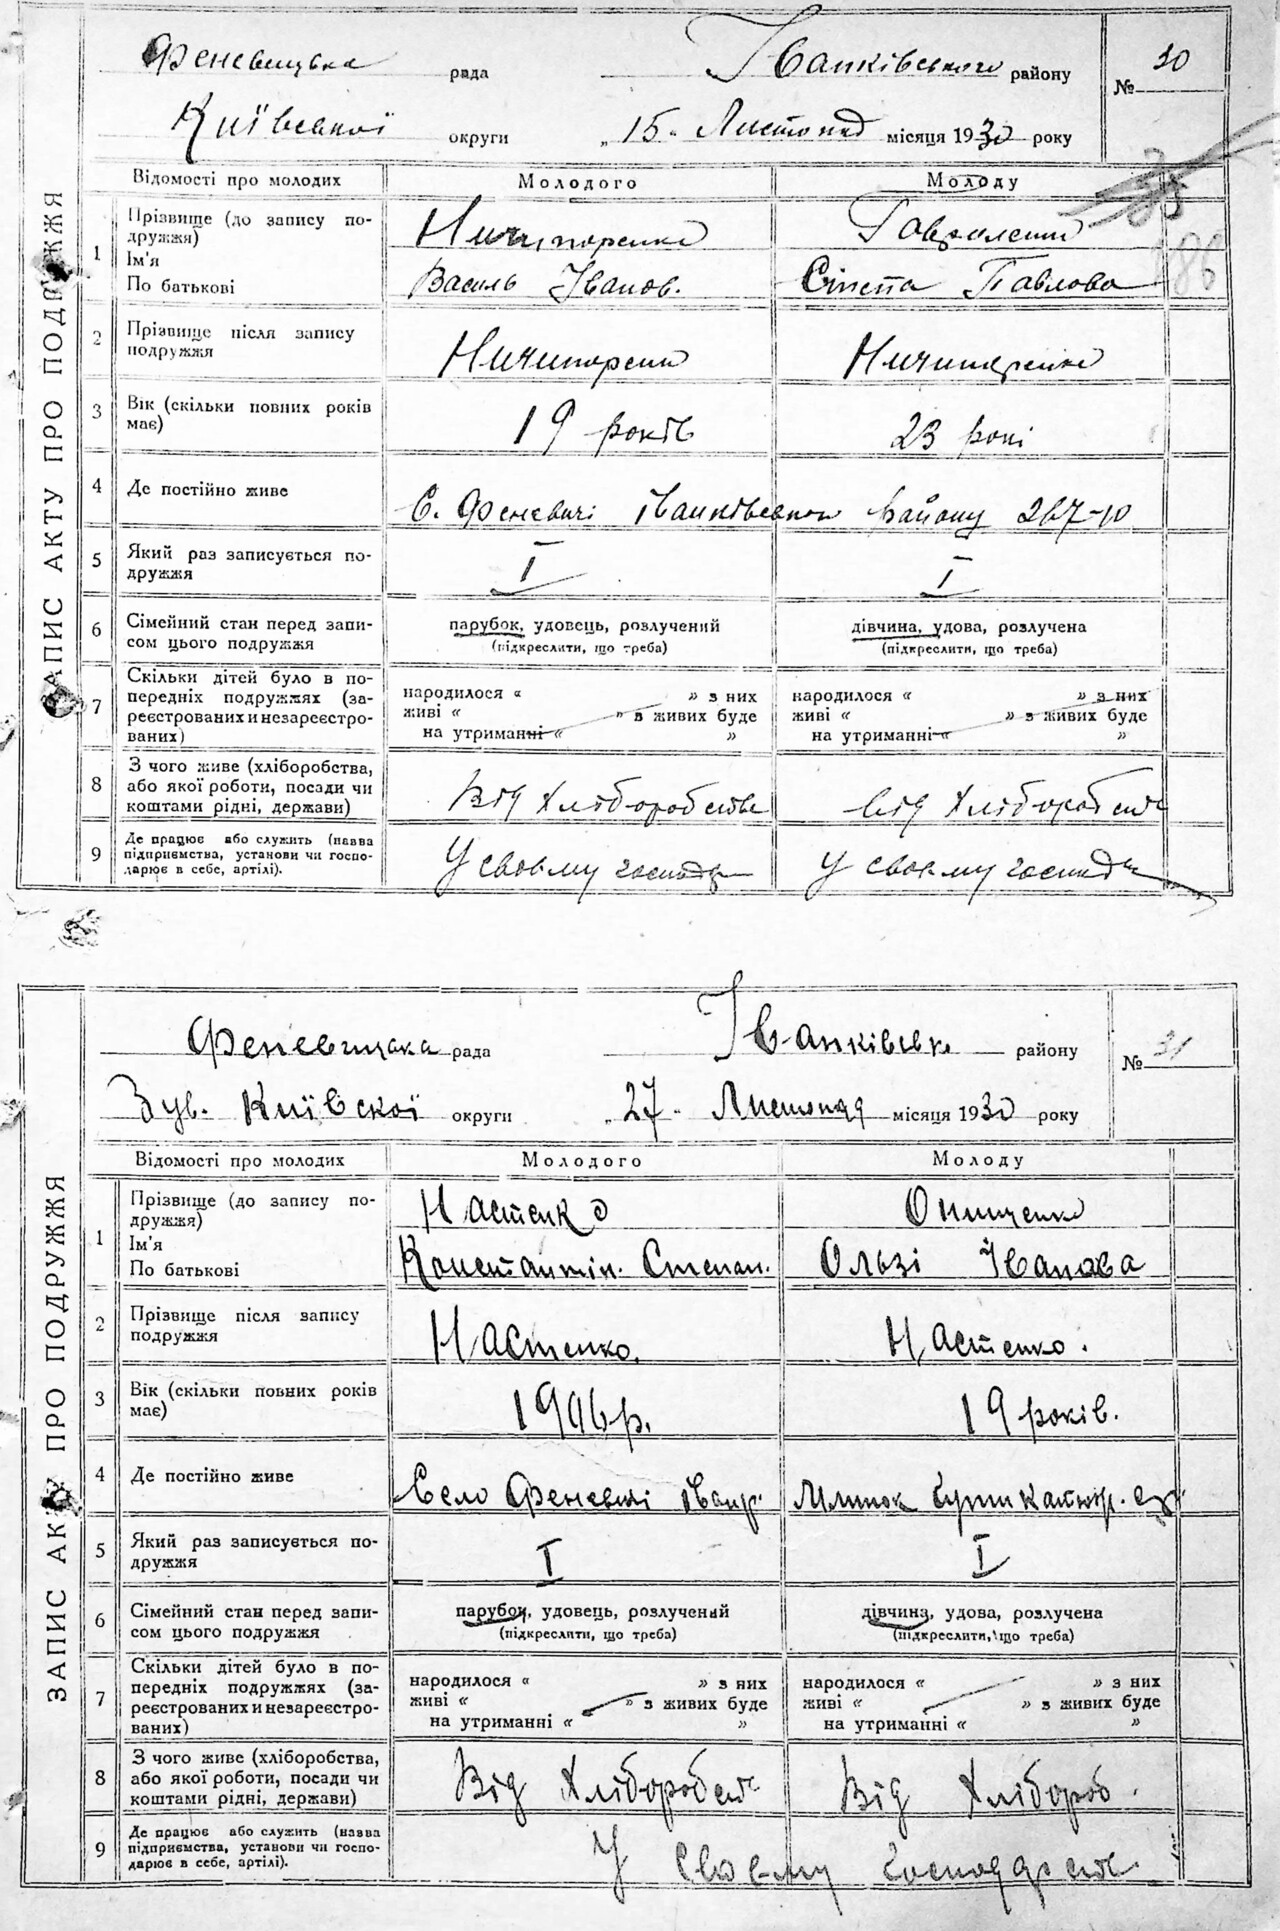 ЗАПИС АКТУ ПРО ПОДРУЖЖЯ
Феневицька рада Іванківського району № 30
Київської округи „15" Листопад місяця 1930 року
35
186
Відомості про молодих Молодого Молоду
1 Прізвище (до запису подружжя) Ничипоренко
Ім'я
По батькові Василь Іванов. Павлова
2 Прізвище після запису подружжя Ничипоренко Ничипоренко
3 Вік (скільки повних років має) 19 років 23 роки
4 Де постійно живе С. Феневичі Іванківського Району
5 Який раз записується подружжя I I
6 Сімейний стан перед записом цього подружжя парубок, удовець, розлучений дівчина, удова, розлучена
(підкреслити, що треба) (підкреслити, що треба)
7 Скільки дітей було в попередніх подружжях (зареєстрованих и незареєстрованих) народилося “ ” з них народилося “ ” з них
живі “ ” з живих буде живі “ ” з живих буде
на утриманні “ ” на утриманні “ ”
8 З чого живе (хліборобства, або якої роботи, посади чи коштами рідні, держави) Від Хліборобств Від Хліборобств
9 Де працює або служить (назва підприємства, установи чи господарює в себе, артілі). У своєму господар У своєму господ
ЗАПИС АКТУ ПРО ПОДРУЖЖЯ
Феневицька рада Іванківськ району № 31
Київскої округи „27" Листопад місяця 1930 року
Відомості про молодих Молодого Молоду
1 Прізвище (до запису подружжя) Настенко Онищенко
Ім'я
По батькові Константін. Степан. Ользі Іванова
2 Прізвище після запису подружжя Настенко. Настенко.
3 Вік (скільки повних років має) 1906 р. 19 років.
4 Де постійно живе Село Феневичі
5 Який раз записується подружжя I I
6 Сімейний стан перед записом цього подружжя парубок, удовець, розлучений дівчина, удова, розлучена
(підкреслити, що треба) (підкреслити, що треба)
7 Скільки дітей було в попередніх подружжях (зареєстрованих и незареєстрованих) народилося “ ” з них народилося “ ” з них
живі “ ” з живих буде живі “ ” з живих буде
на утриманні “ ” на утриманні “ ”
8 З чого живе (хліборобства, або якої роботи, посади чи коштами рідні, держави) Від Хліборобств Від Хлібороб.
9 Де працює або служить (назва підприємства, установи чи господарює в себе, артілі). У своєму господарств